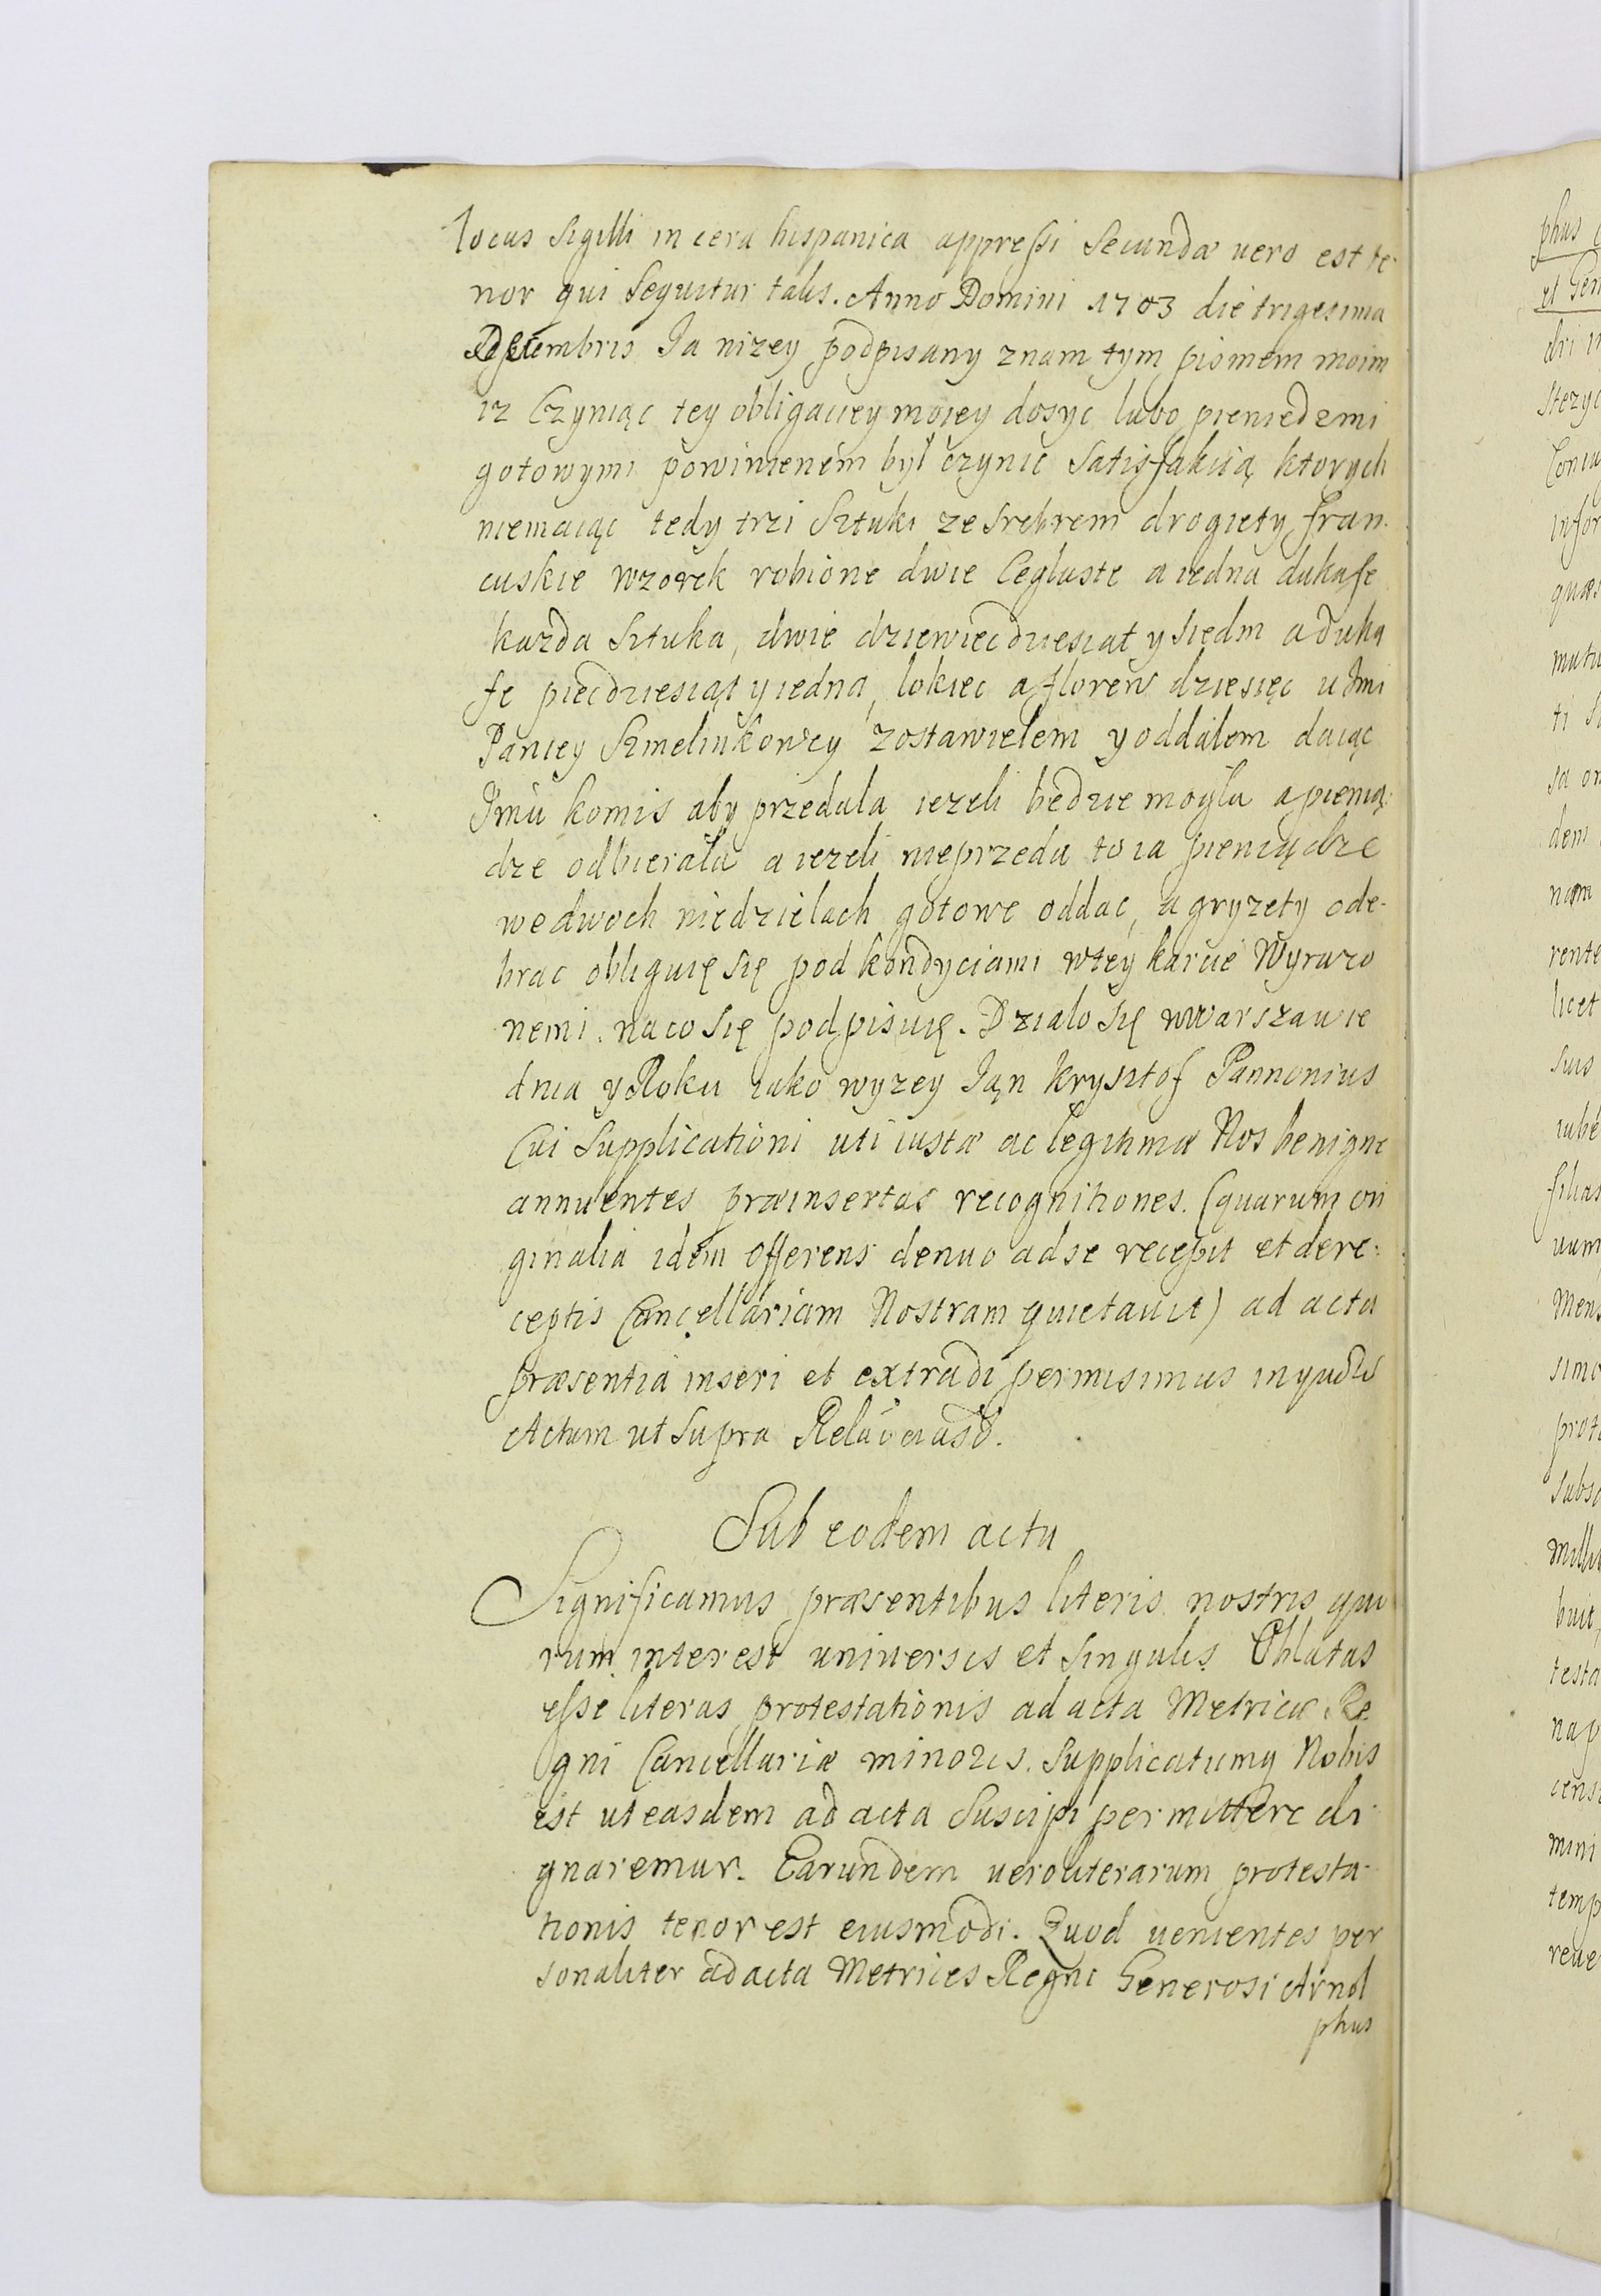 locus Sigilli in cera hispanica appressi Secundæ uero est te-
nor qui Sequitur talis. Anno Domini 1703 die trigesima
Septembris Ja nizey podpisany znam tym pismem moim
iz Czyniąc tey obligacuey moiey dosyc lubo pieniedzmi
gotowymi powinienem był czynic Satisfakcią ktorych
niemaiąc tedy trzi Sztuki ze Srebrem drogiety fran-
cuskie wzorek robione dwie Cegluste a iedna dukafe
kazda Sztuka, dwie dziewiecdziesiat y siedm a duka
fe piecdziesiąt y iedna, lokiec a floren dziesięc u Jmi
Paniey Szmelinkowey zostawielem y oddalem daiąc
Jmu komis aby przedala iezeli bedzie mogla a pienią-
dze odbierala a iezeli nieprzeda to ia pieniądze
we dwoch niedzielach gotowe oddac, a gryzety ode-
brac obliguię się pod kondyciami wtey karcie Wyrazo
nemi. na co się podpisuię. Dzialo się w Warszawie
dnia y Roku iako wyzey Jan Krysztof Pannonius
Cui Supplicationi uti iustæ ac legitimæ Nos benigne
annuentes præinsertas recognitiones. (quarum ori
ginalia idem Offerens denuo ad se recepit et de re-
ceptis Cancellariam Nostram quietauit) ad acta
præsentia inseri et extradi permisimus
Actum ut Supra
Sub eodem actu
Significamus præsentibus literis nostris quo
rum interest uniuersis et Singulis Oblatas
esse literas protestationis ad acta Metricæ Re
gni Cancellariæ minoris. Supplicatumq Nobis
est ut easdem ad acta Suscipi permittere di
gnaremur. Earundem uero literarum protesta-
tionis tenor est eiusmodi. Quod uenientes per
sonaliter ad acta Metrices Regni Generosi Arnol
phus